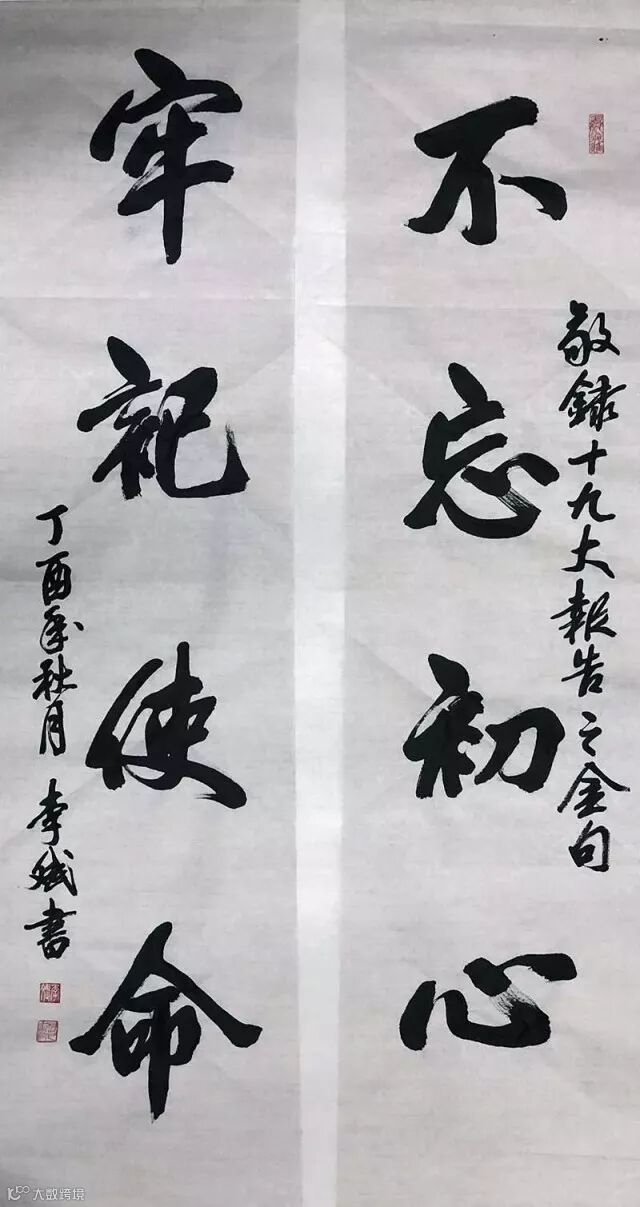 敬錄十九大報告之金句
不忘初心
牢記使命
丁酉年秋月 李斌書
大数跨境